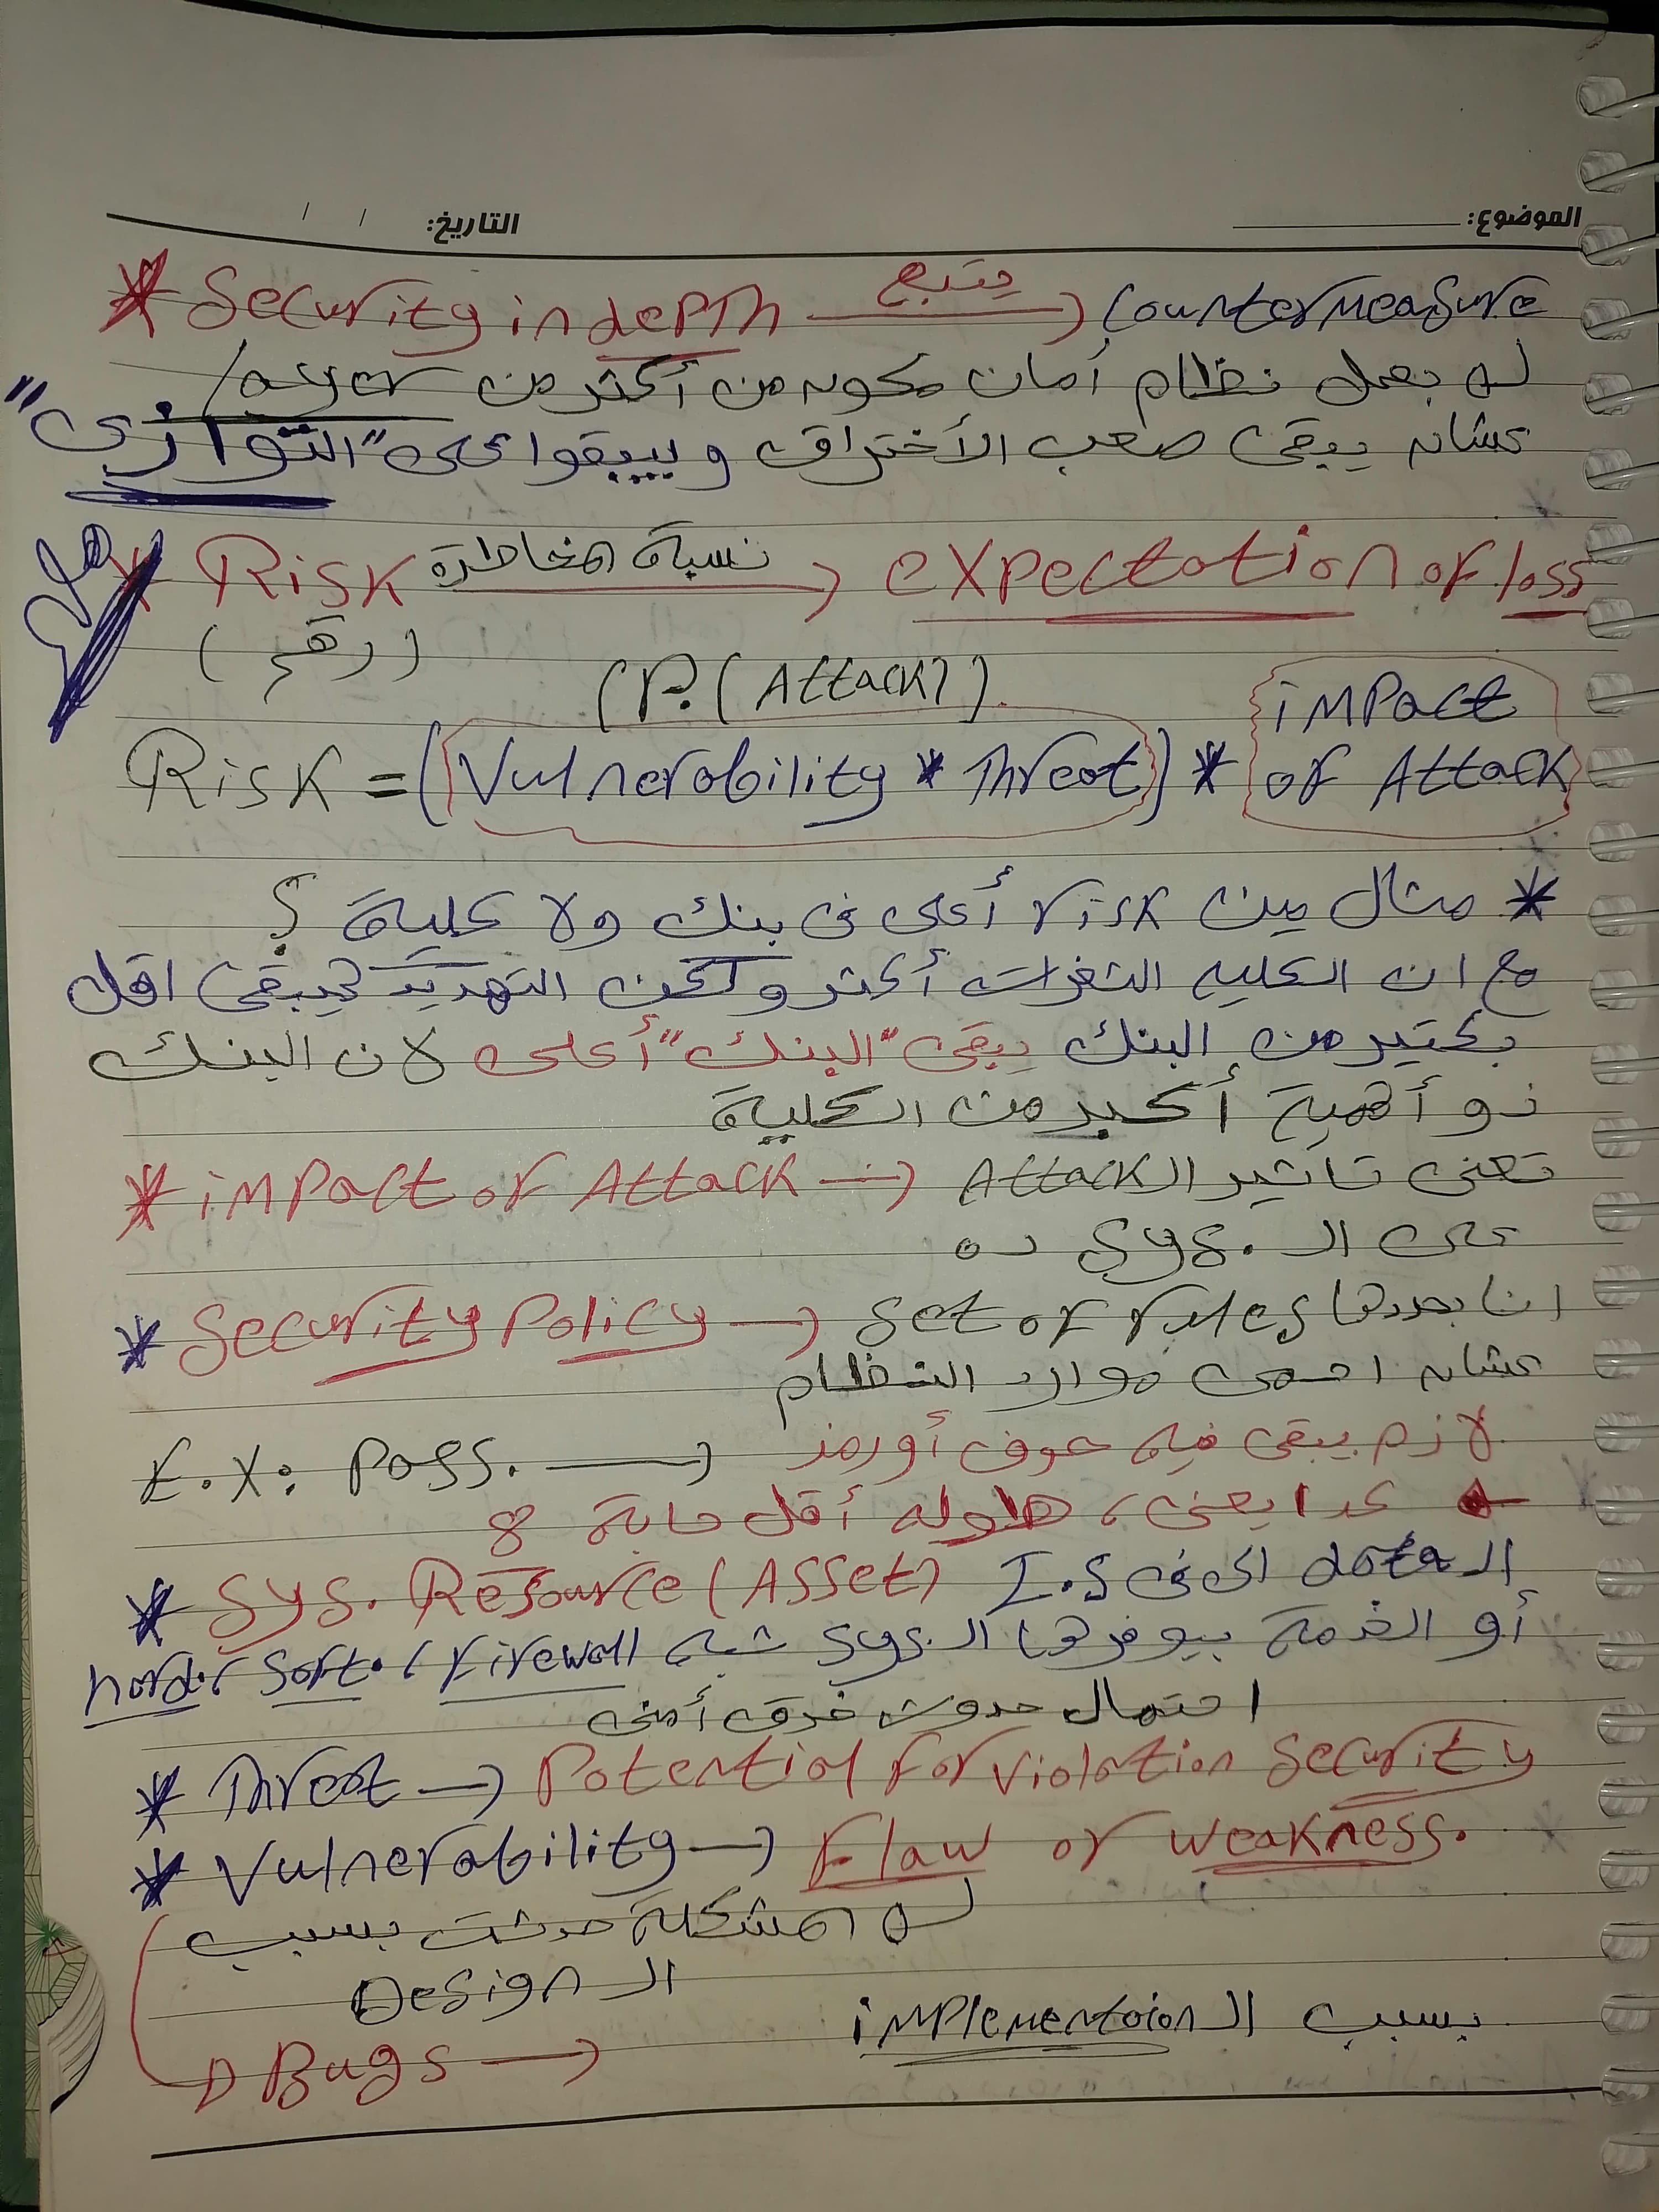 الموضوع: التاريخ: / /
* Security in depth يتبع → Countermeasure
لو بعمل نظام أمان مكونه من أكتر من layer
عشانه يبقى صعب الأختراق ويبيقوا على "التوازى"
* Risk نسبة المخاطرة → expectation of loss
(رقم)
(P. (Attack))
Risk = (Vulnerability * Threat) * impact of Attack
* مثال مين risk أعلى فى بنك ولا كلية ؟
مع ان الكليه الثغرات أكتر ولكن التهديد هيبقى اقل
بكتير من البنك يبقى "البنك" أعلى لان البنك
ذو أهمية أكبر من الكلية
* impact of Attack → تعنى تأثير الـ Attack
على الـ sys. ده
* Security Policy → set of rules انا بحددها
عشانه احمى موارد النظام
E.X: Pass. → لازم يبقى فيه حرف أو رمز
كدا يعنى، طوله أقل حاجة 8
* Sys. Resource (Asset) الـ data الى فى I.S
أو الخدمة بيوفرها الـ sys. شبه hard. , soft. , firewall
احتمال حدوث خرق أمنى
* Threat → Potential for violation security
* Vulnerability → Flaw or weakness.
لو المشكلة حدثت بسبب
الـ Design
Bugs → بسبب الـ implementoion